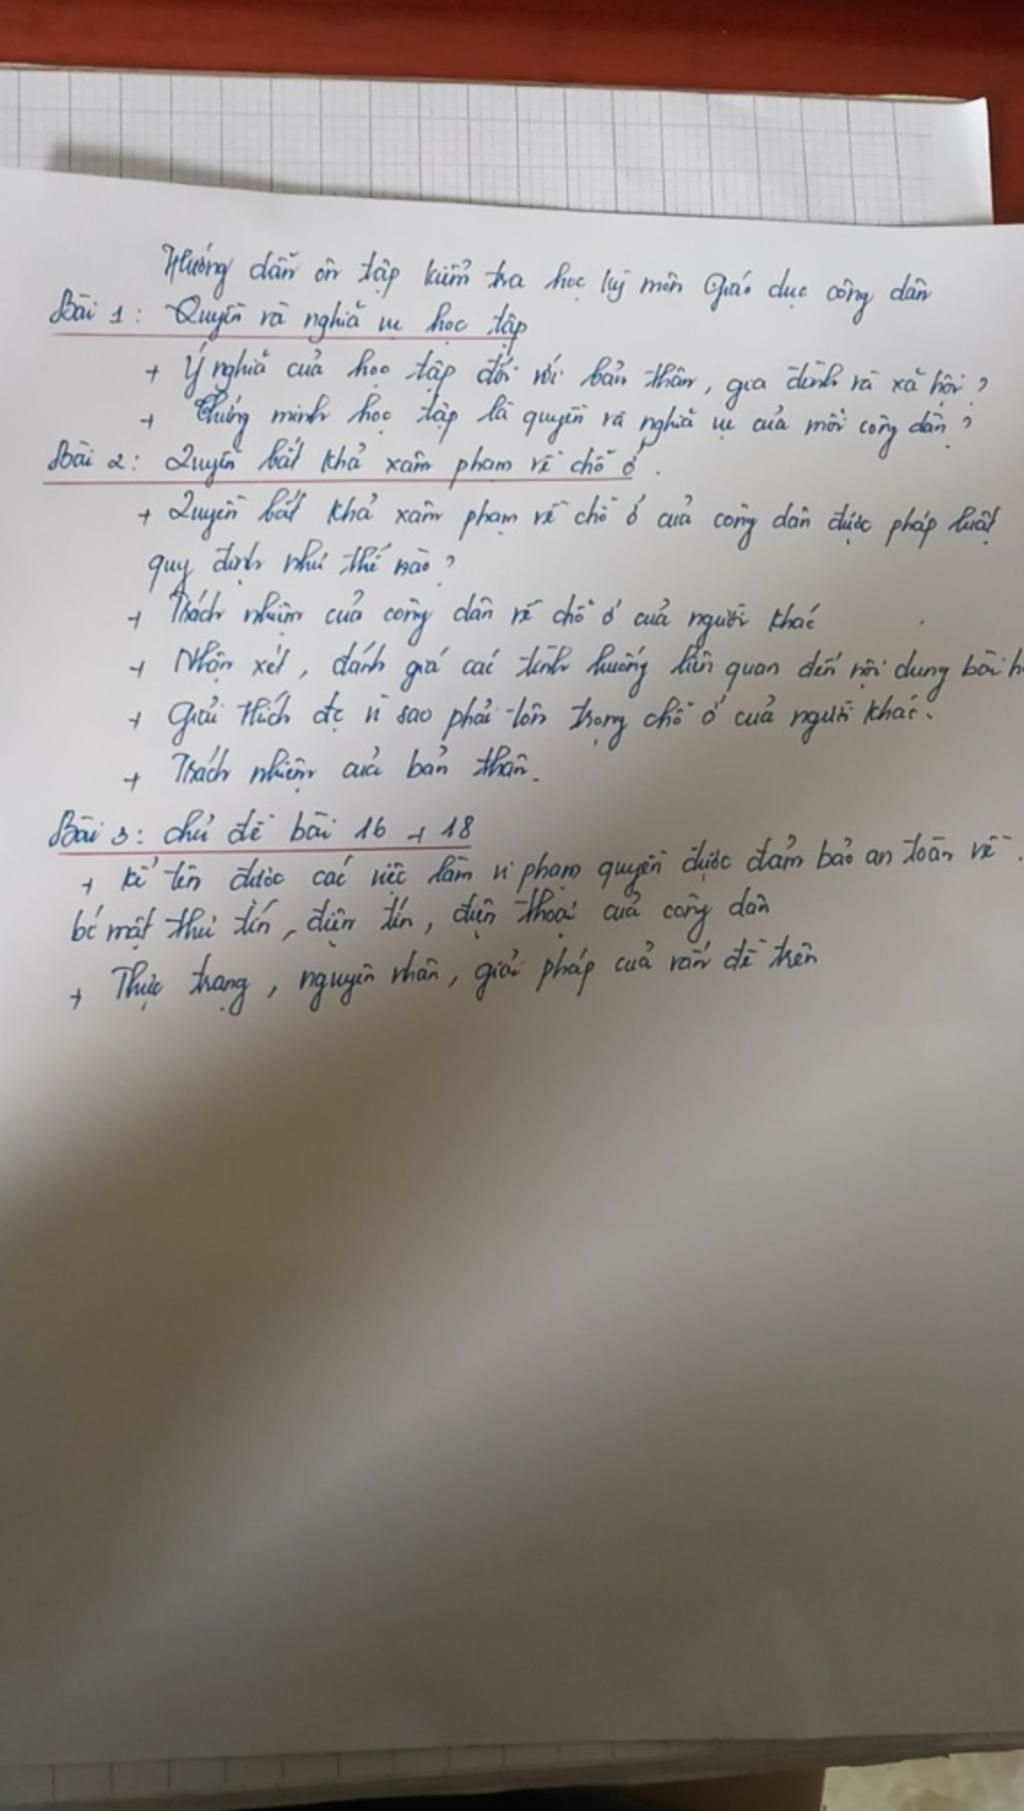 Hướng dẫn ôn tập kiểm tra học kỳ môn Giáo dục công dân
Bài 1: Quyền và nghĩa vụ học tập
+ Ý nghĩa của học tập đối với bản thân, gia đình và xã hội?
+ Chứng minh học tập là quyền và nghĩa vụ của mỗi công dân?
Bài 2: Quyền bất khả xâm phạm về chỗ ở.
+ Quyền bất khả xâm phạm về chỗ ở của công dân được pháp luật
quy định như thế nào?
+ Trách nhiệm của công dân về chỗ ở của người khác
+ Nhận xét, đánh giá các tình huống liên quan đến nội dung bài h
+ Giải thích đc vì sao phải tôn trọng chỗ ở của người khác.
+ Trách nhiệm của bản thân.
Bài 3: Chủ đề bài 16 + 18
+ Kể tên được các việc làm vi phạm quyền được đảm bảo an toàn về
bí mật thư tín, điện tín, điện thoại của công dân
+ Thực trạng, nguyên nhân, giải pháp của vấn đề trên